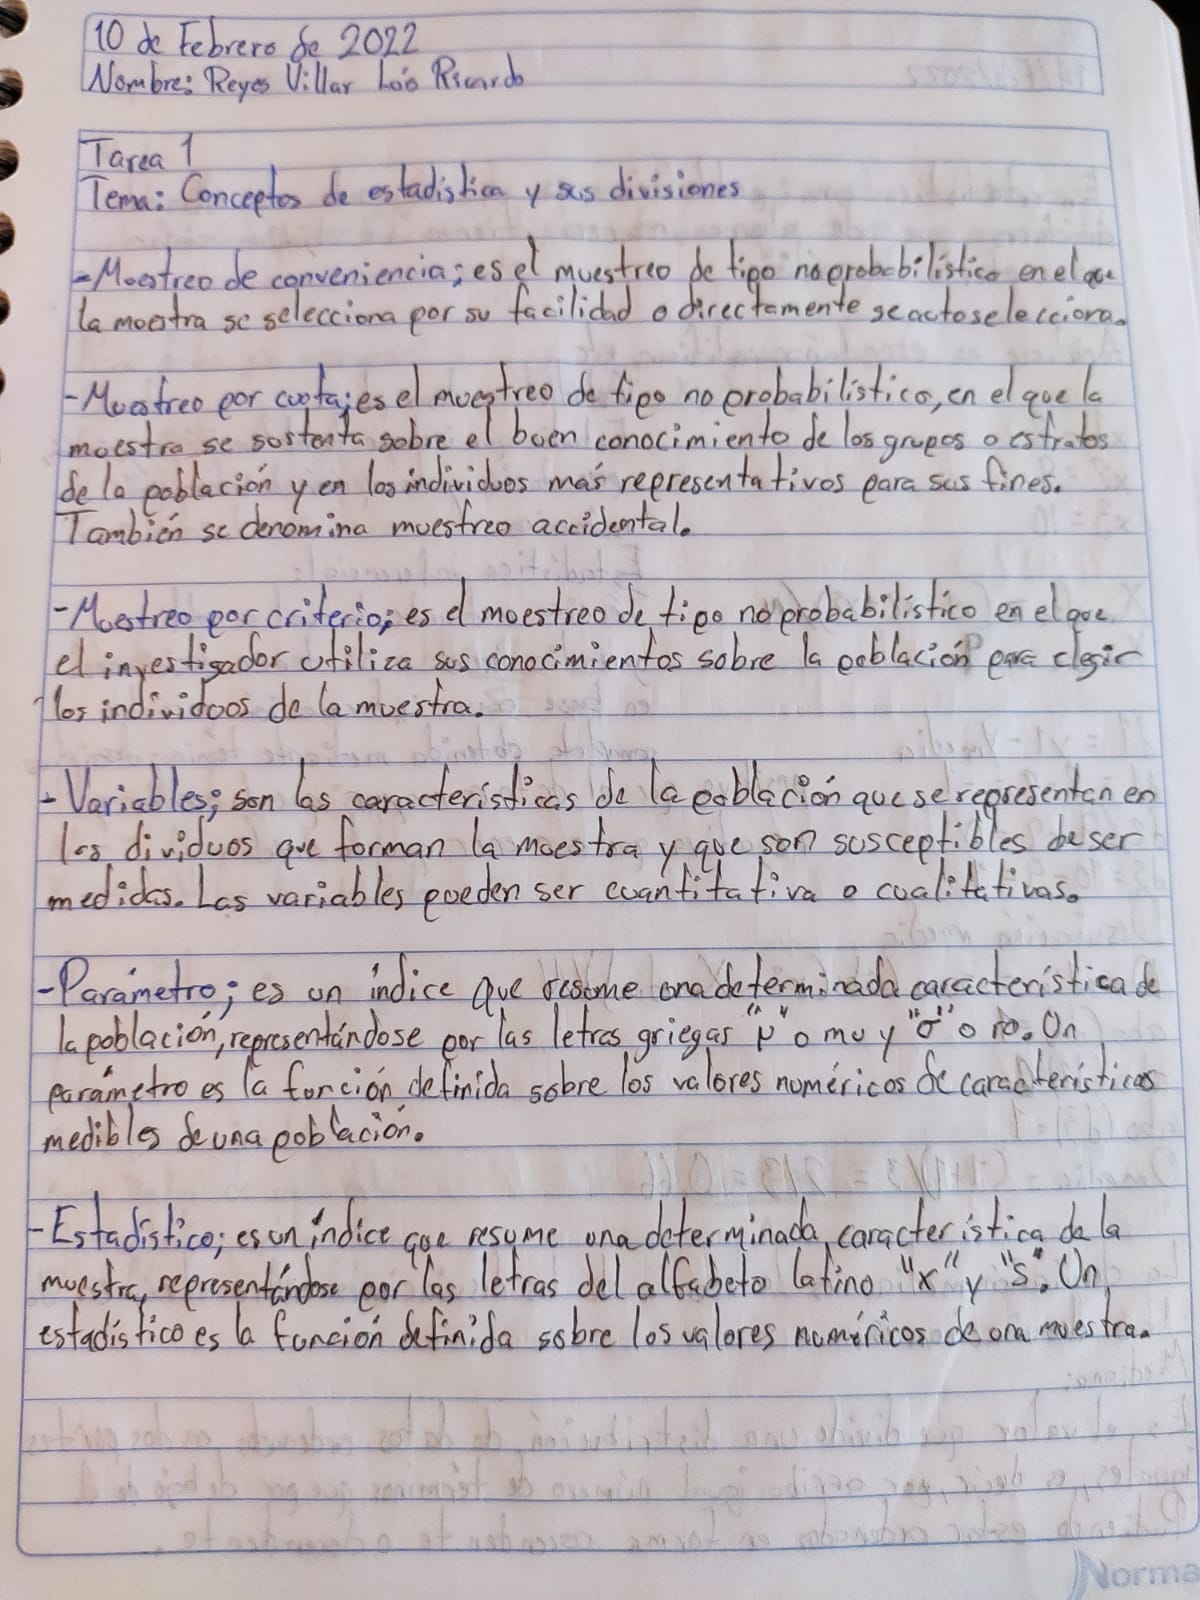 10 de Febrero de 2022
Nombre: Reyes Villar Luis Ricardo
Tarea 1
Tema: Conceptos de estadística y sus divisiones
- Muestreo de conveniencia; es el muestreo de tipo no probabilístico en el que
la muestra se selecciona por su facilidad o directamente se autoselecciona.
- Muestreo por cuota; es el muestreo de tipo no probabilístico, en el que la
muestra se sustenta sobre el buen conocimiento de los grupos o estratos
de la población y en los individuos más representativos para sus fines.
También se denomina muestreo accidental.
- Muestreo por criterio; es el muestreo de tipo no probabilístico en el que
el investigador utiliza sus conocimientos sobre la población para elegir
los individuos de la muestra.
- Variables; son las características de la población que se representan en
los dividuos que forman la muestra y que son susceptibles de ser
medidas. Las variables pueden ser cuantitativa o cualitativas.
- Parámetro; es un índice que resume una determinada característica de
la población, representándose por las letras griegas "μ" o mu y "σ" o ro. Un
parámetro es la función definida sobre los valores numéricos de características
medibles de una población.
- Estadístico; es un índice que resume una determinada característica de la
muestra, representándose por las letras del alfabeto latino "x" y "s". Un
estadístico es la función definida sobre los valores numéricos de una muestra.
Norma